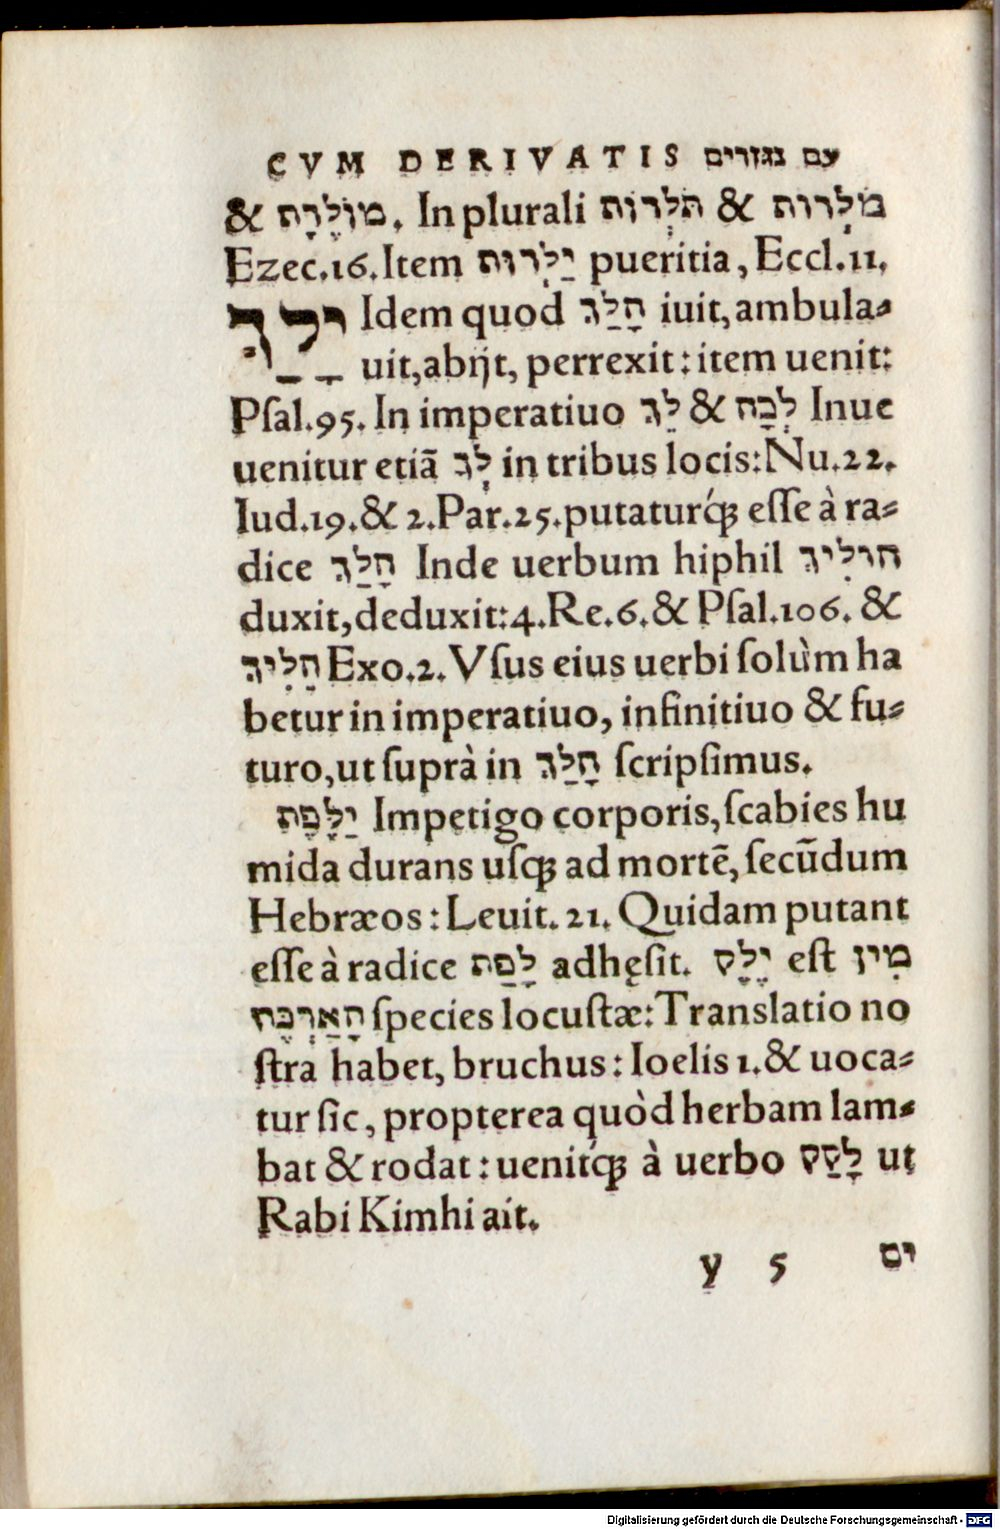 CVM DERIVATIS עם נגזרים
& מוֹלֶדֶת. In plurali תּלְדוֹת & מֹלָדוּת
Ezec.16. Item יַלְדוּת pueritia, Eccl.11.
יָלַךְ Idem quod הָלַךְ iuit, ambula⸗
uit, abijt, perrexit: item uenit:
Psal.95. In imperatiuo לֵךְ & לְכָה Inue
uenitur etiã לָךְ in tribus locis: Nu.22.
Iud.19. & 2.Par.25. putaturq́ꝫ esse à ra⸗
dice הָלַךְ Inde uerbum hiphil הוֹלִיךְ
duxit, deduxit: 4.Re.6. & Psal.106. &
הֵלִיךְ Exo.2. Vsus eius uerbi solùm ha
betur in imperatiuo, infinitiuo & fu⸗
turo, ut suprà in הָלַךְ scripsimus.
יַלֶּפֶת Impetigo corporis, scabies hu
mida durans usqꝫ ad mortē, secūdum
Hebræos: Leuit.21. Quidam putant
esse à radice לָפַת adhęsit. יֶלֶק est מִין
הָאַרְבֶּה species locustæ: Translatio no
stra habet, bruchus: Ioelis 1. & uoca⸗
tur sic, propterea quòd herbam lam⸗
bat & rodat: uenitq́ꝫ à uerbo לָקַק ut
Rabi Kimhi ait.
y 5 ים
Digitalisierung gefördert durch die Deutsche Forschungsgemeinschaft - DFG